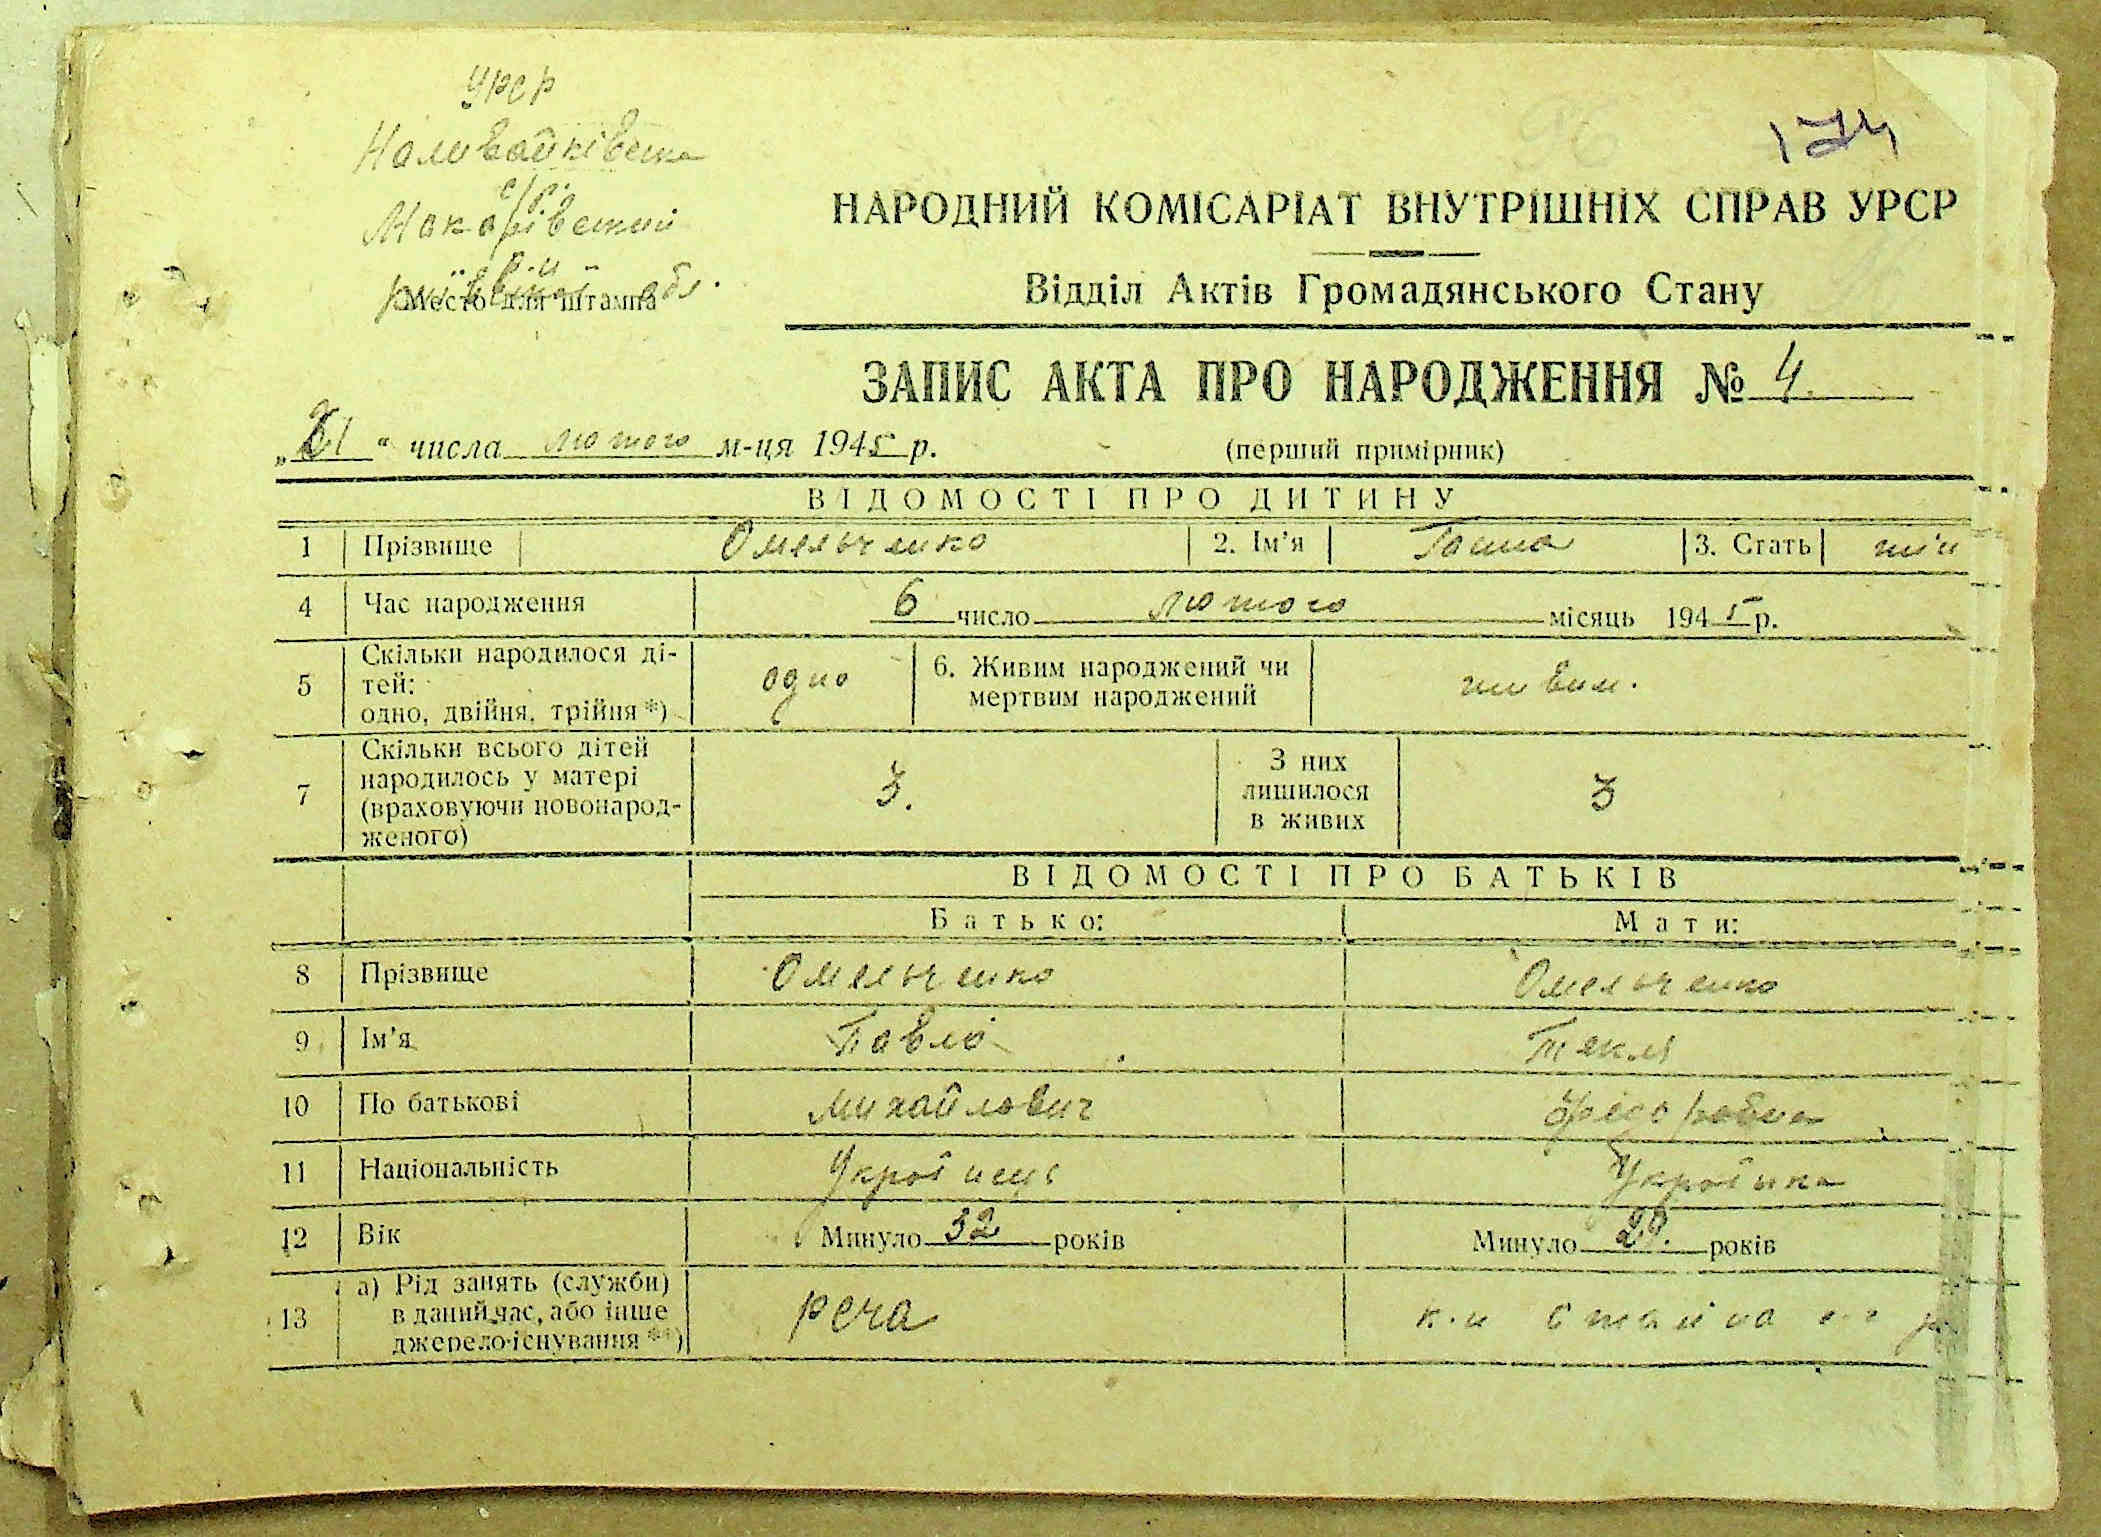 УРСР
Наливайківська
с/р.
Макарівський
р-н
Київської обл.
Место для штампа
174
НАРОДНИЙ КОМІСАРІАТ ВНУТРІШНІХ СПРАВ УРСР
Відділ Актів Громадянського Стану
ЗАПИС АКТА ПРО НАРОДЖЕННЯ № 4
„21“ числа лютого м-ця 1945 р.
(перший примірник)
ВІДОМОСТІ ПРО ДИТИНУ
1 Прізвище Омельченко 2. Ім'я Ганна 3. Стать жін
4 Час народження 6 число лютого місяць 1945 р.
5 Скільки народилося ді-
тей:
одно, двійня, трійня *) одно
6. Живим народжений чи
мертвим народжений живим.
7 Скільки всього дітей
народилось у матері
(враховуючи новонарод-
женого) 3.
З них
лишилося
в живих 3
ВІДОМОСТІ ПРО БАТЬКІВ
Батько: Мати:
8 Прізвище Омельченко Омельченко
9 Ім'я Павло Текля
10 По батькові Михайлович
11 Національність Українець Українка
12 Вік Минуло 32 років Минуло 29. років
13 а) Рід занять (служби)
в даний час, або інше
джерело існування **) РСЧА